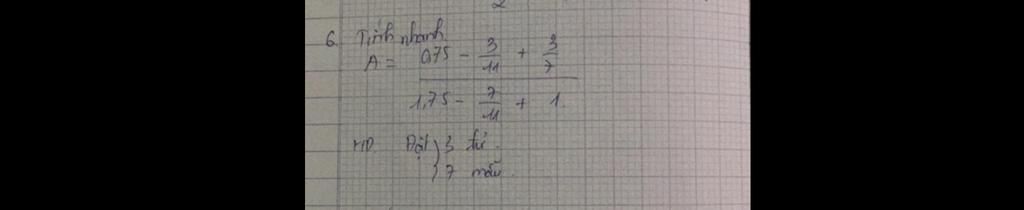 2
6. Tính nhanh
A = 0,75 - 3/11 + 3/7
1,75 - 7/11 + 1.
HD. Đặt } 3 tử.
} 7 mẫu.